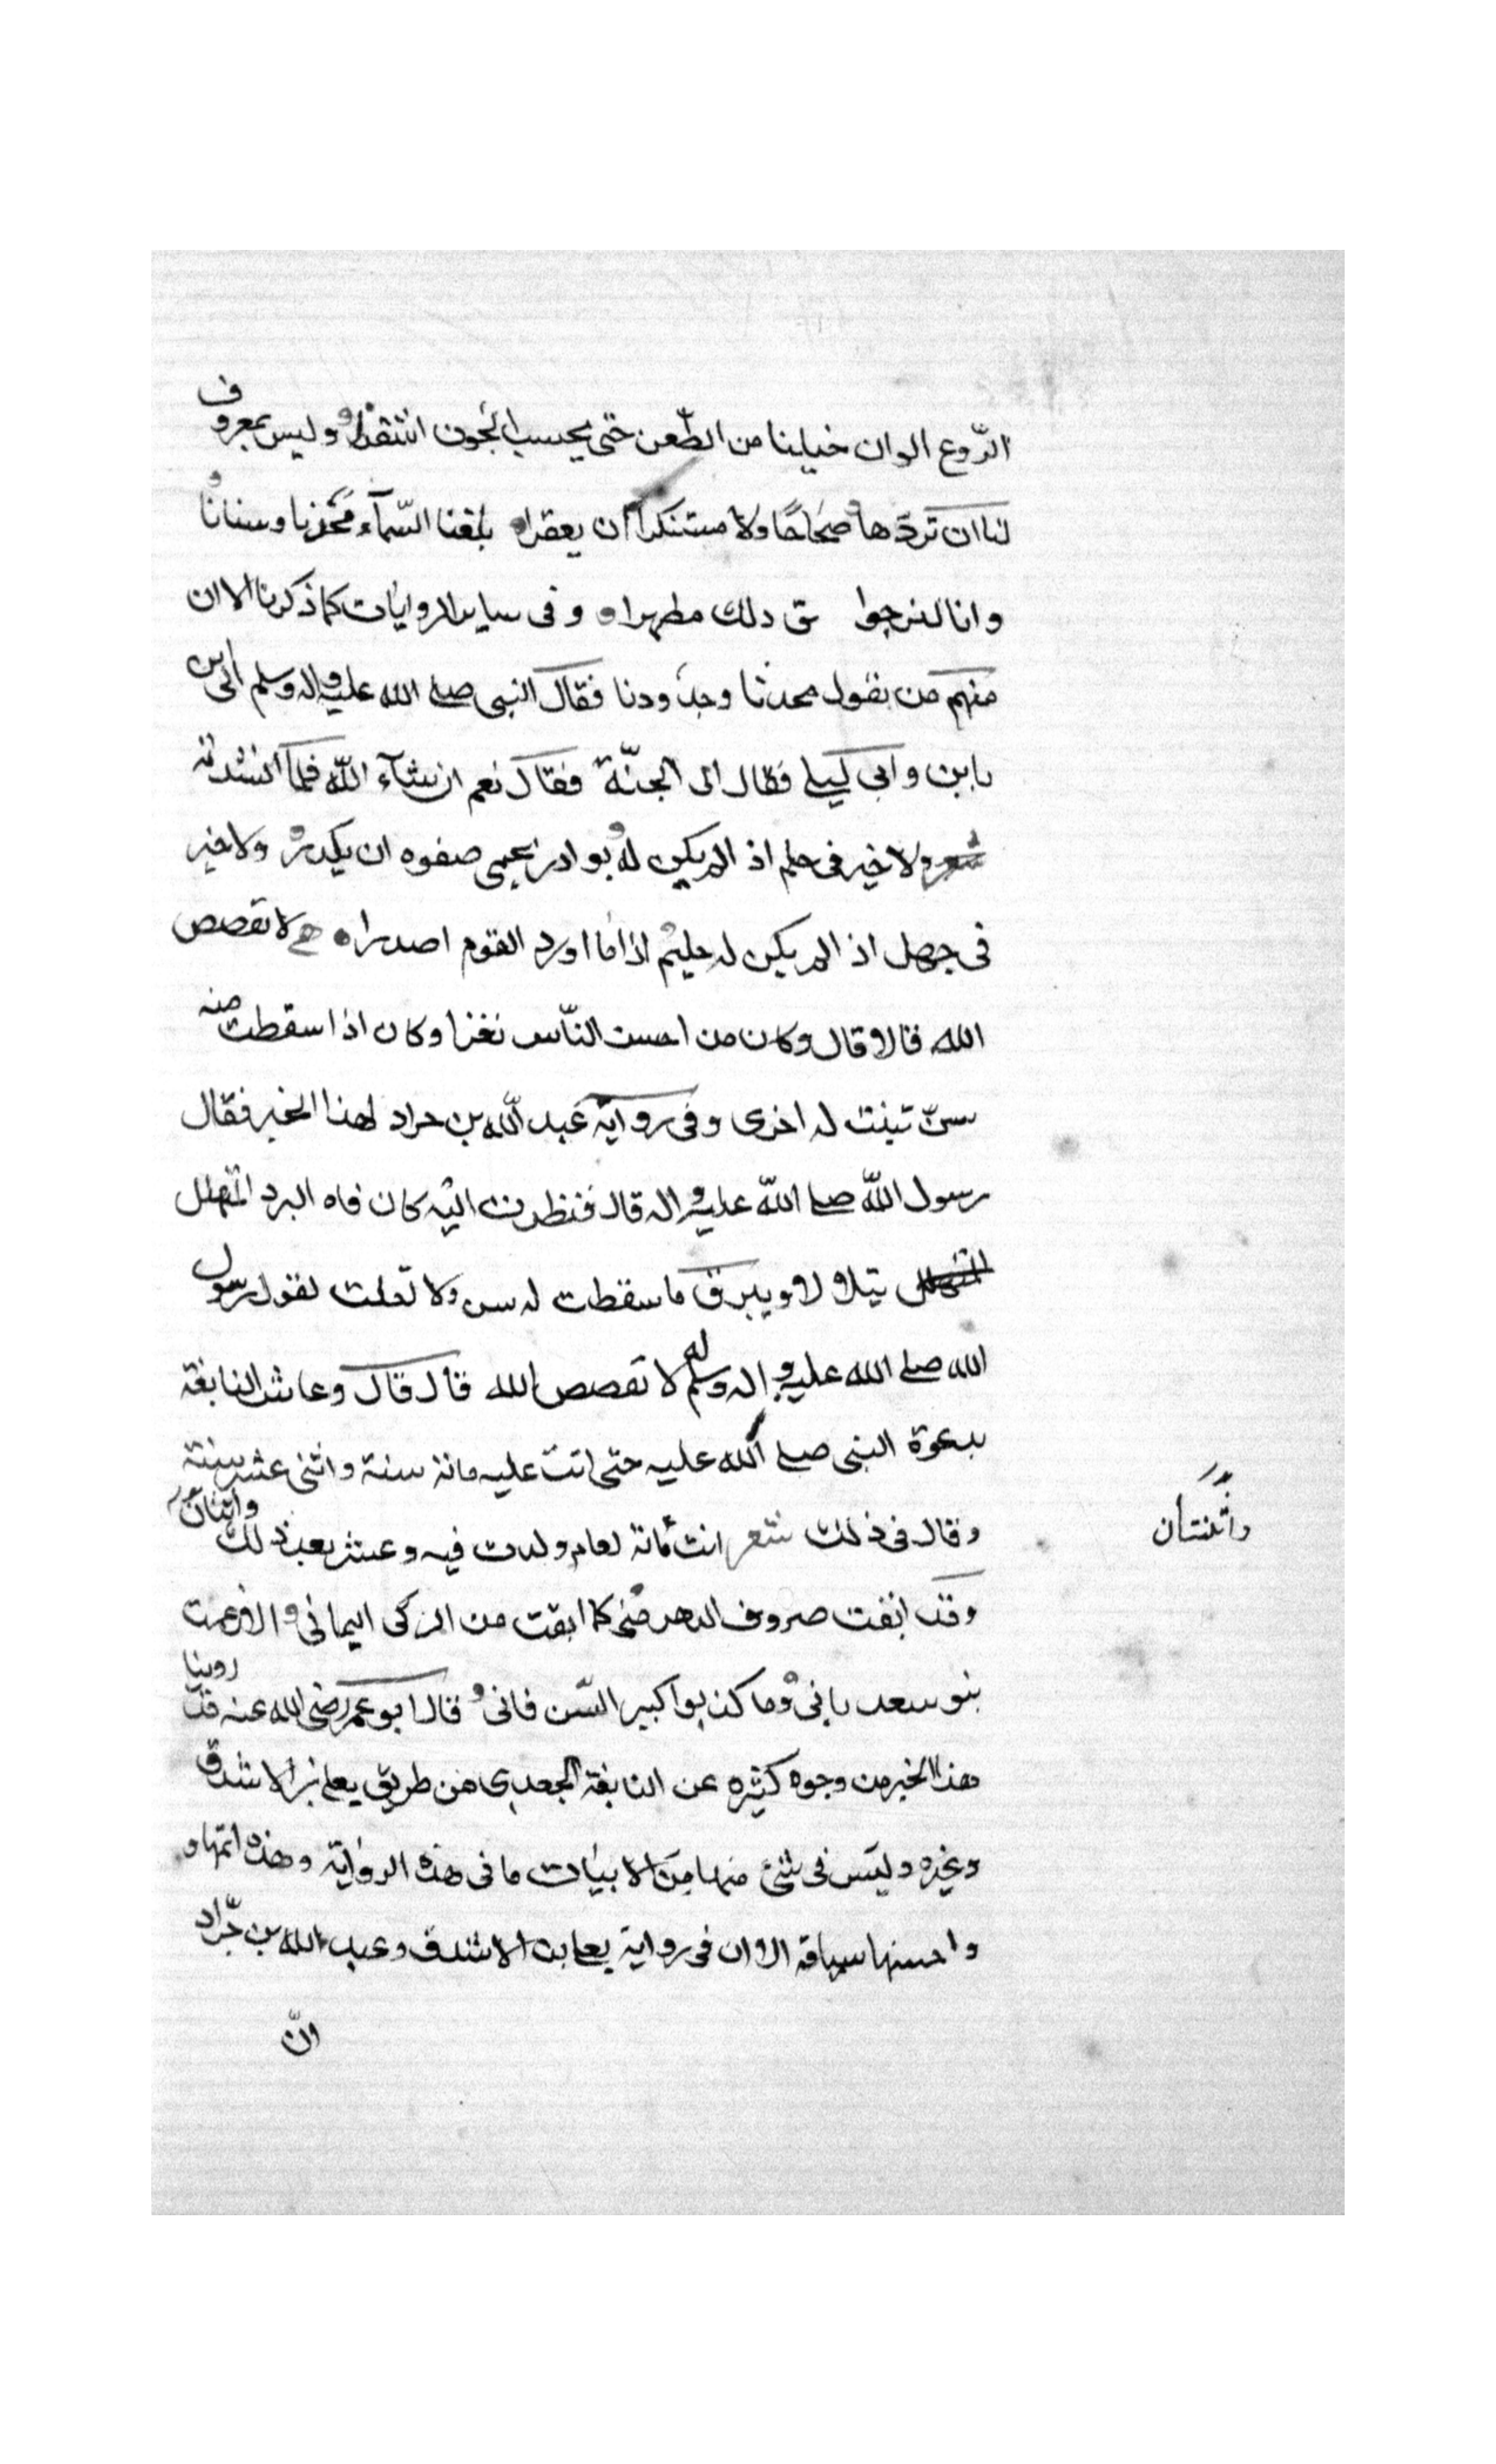 الرّوع الوان خيلنا من الطّعن حتى يحسب الجون اشقرا وليس بمعروف
لنا ان تردّها صحاحًا ولا مستنكرا ان يعقرا بلغنا السّمآء مجدنا وسنانا
وانا لنرجوا ق دلك مطهرا وفى ساير الروايات كما ذكرنا الا ان
منهم من يقول مجدنا وجدودنا فقال النبى صلے الله عليه واله وسلم الى اين
يابن وابى ليلے فقال الى الجنّة فقال نعم ان شآء اللّه فلما انشدته
ولا خير فى حلم اذ الم يكن له بوادر تحمى صفوه ان يكدرا ولا خير
فى جهل اذ الم يكن له حليم اذا ما اورد القوم اصدرا لا تفصص
الله فالا قال وكان من احست النّاس ثغرا وكان اذا سقطت منه
سنّ تبنت له اخرى وفى رواية عبد اللّه بن حراد لهذا الخبر فقال
رسول اللّه صلے اللّه عليه واله قال فنظرت اليه كان فاه البرد المنهلل
يتلا لا ويبرق ما سقطت له سن ولا تفلت لقول رسول
الله صلے الله عليه واله وسلم لا تفصص الله قال قال وعاش النابغة
بدعوة النبى صلے الله عليه حتى اتت عليه مائة سنة واثنى عشر سنة
وقال فى ذلك شعر انت مائة لعام ولدت فيه وعشر بعد ذلك واثنان
واثنتان
وقد ابقت صروف الدهر منى كما ابقت من الركى اليمانى والا زعمت
بنو سعد بانى وما كذبوا كبير السّن فانى قال ابو عمر رضى الله عنه قد روينا
هذا الخبر من وجوه كثيره عن النابغة الجعدى من طريق يعلے بن الاشدق
وغيره وليس فى شئ منها من الابيات ما فى هذه الرواية وهذه اتمها و
واحسنها سياقة الا ان فى رواية يعلے بن الاشدق وعبد الله بن جرّاد
انّ